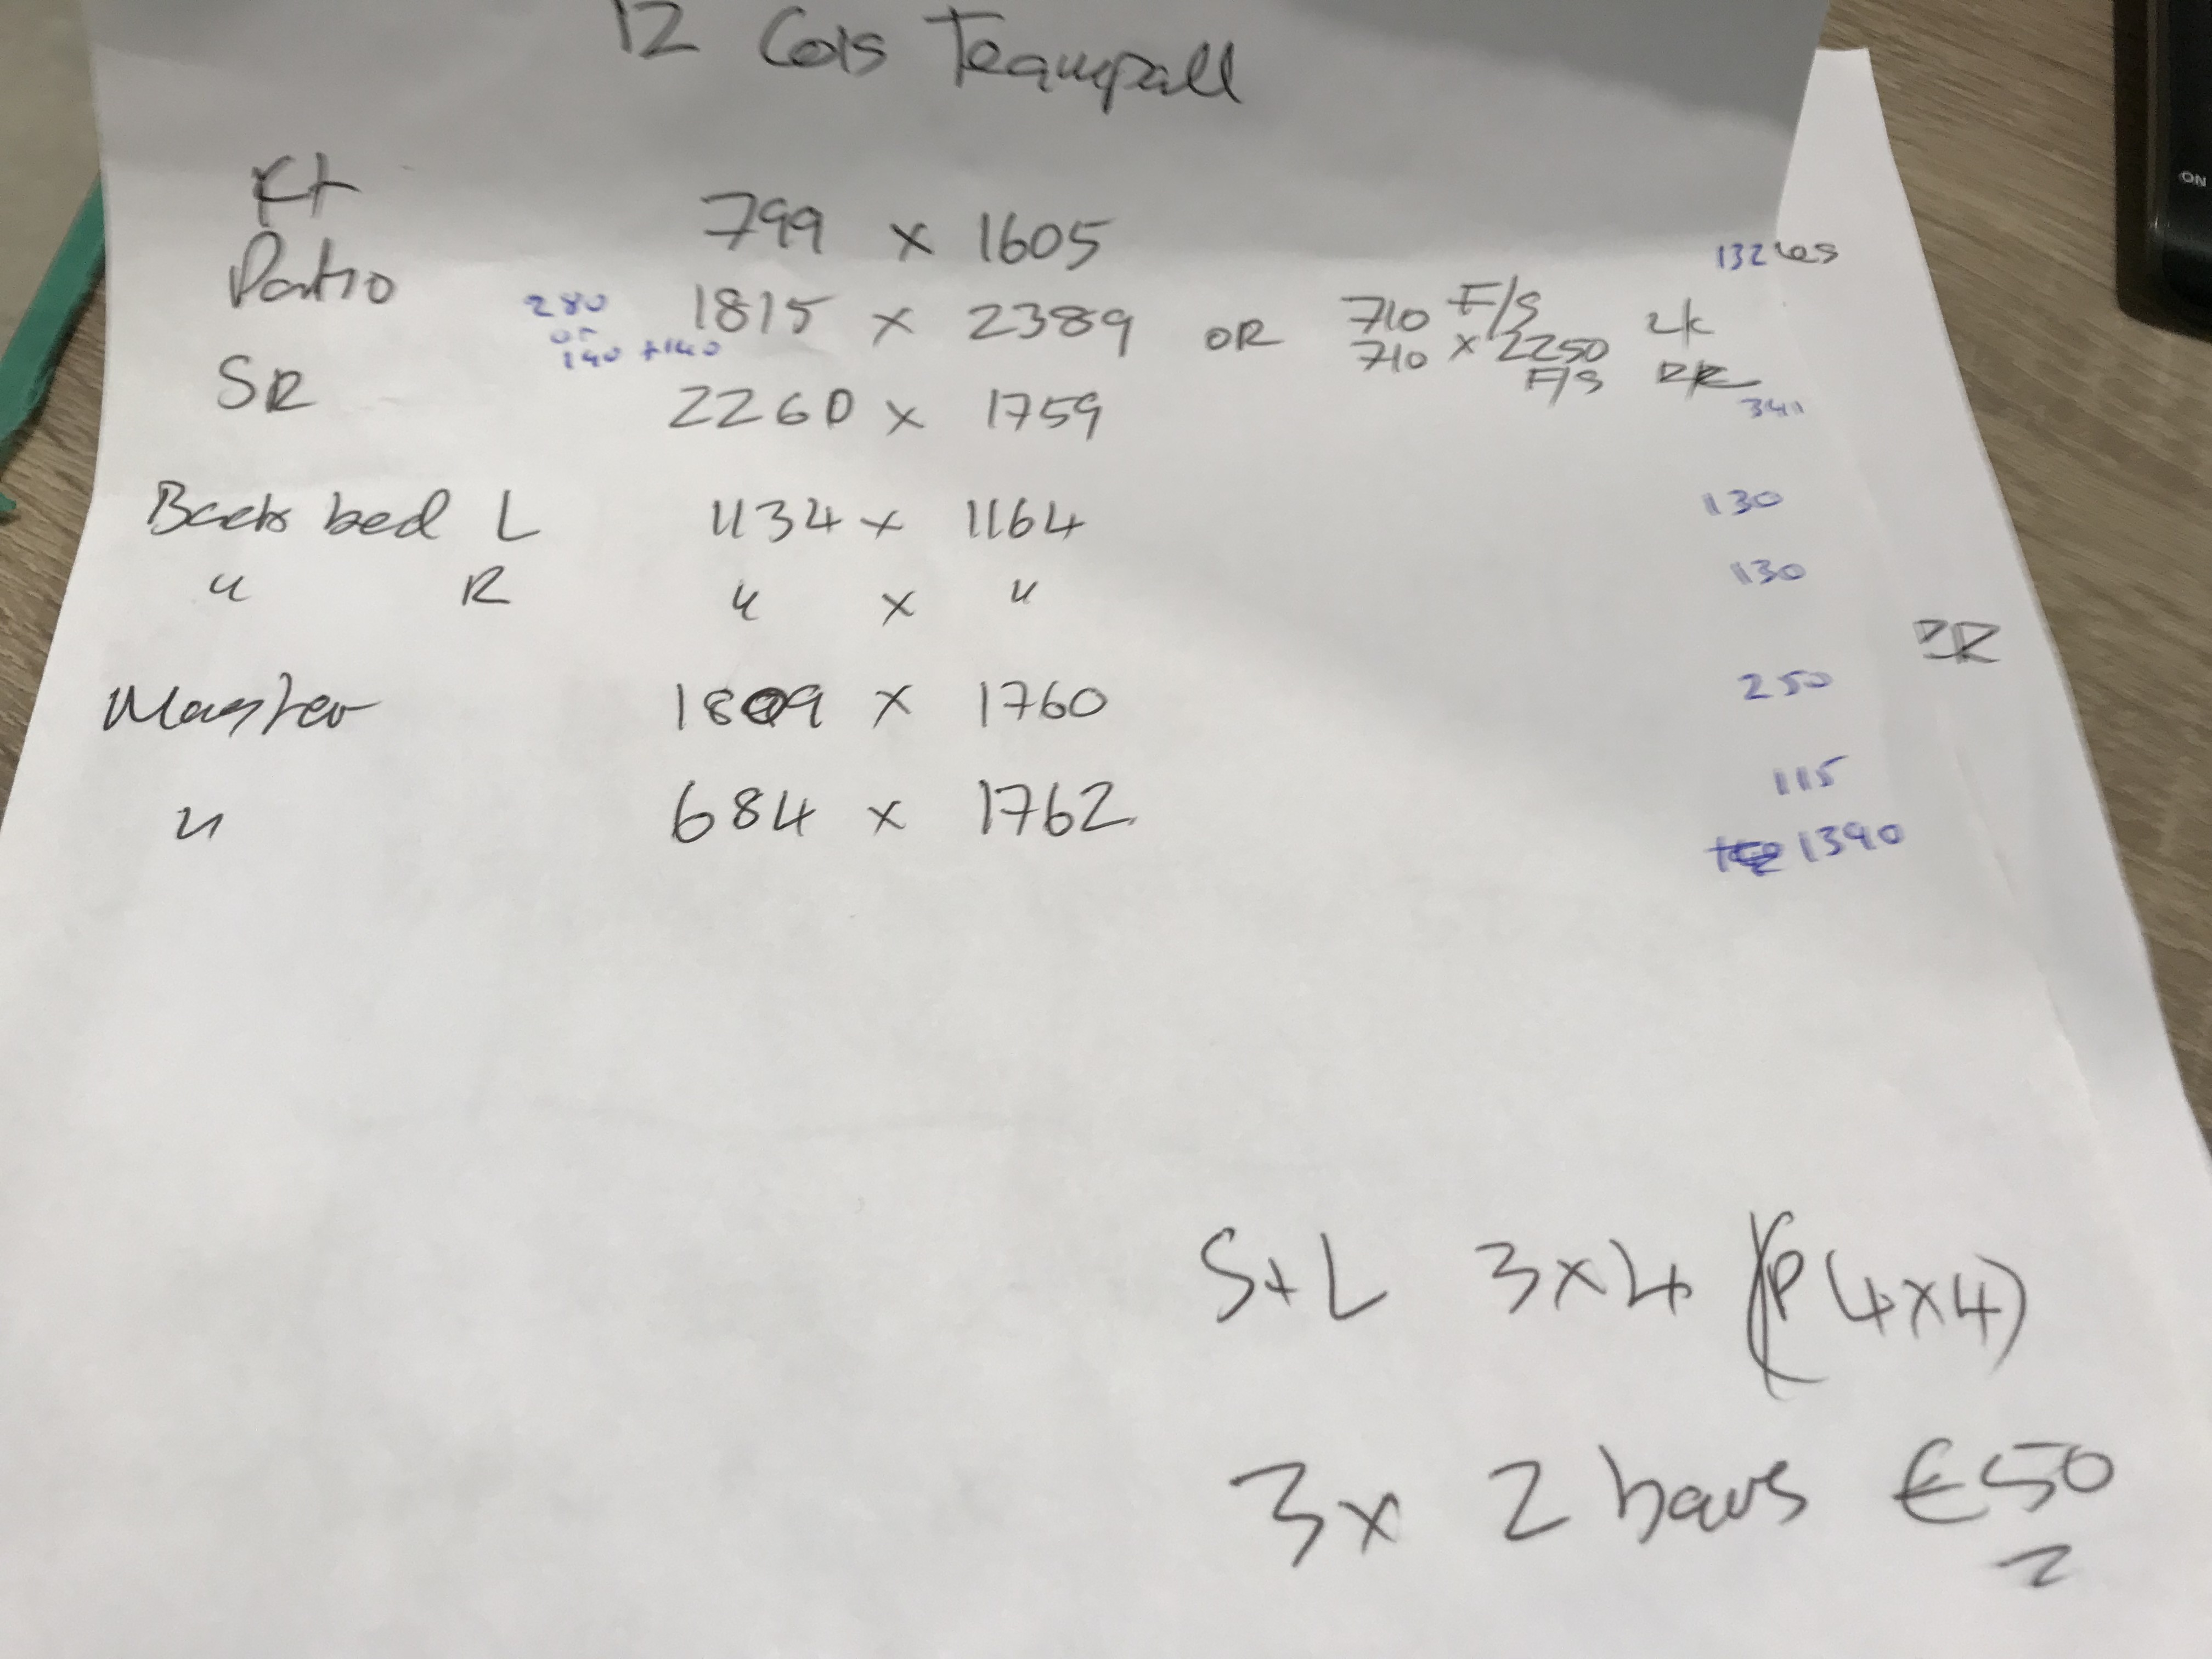 12 Cois Teampall
Kt 799 x 1605 132
Patio 280 or 140 + 140 1815 x 2389 OR 710 F/S 710 x 2250 F/S
SR 2260 x 1759 341
Back bed L 1134 x 1164 130
" R " x " 130
Master 1809 x 1760 250
" 684 x 1762 115
1390
S+L 3x4 (P 4x4)
3 x 2 hours €50
ON